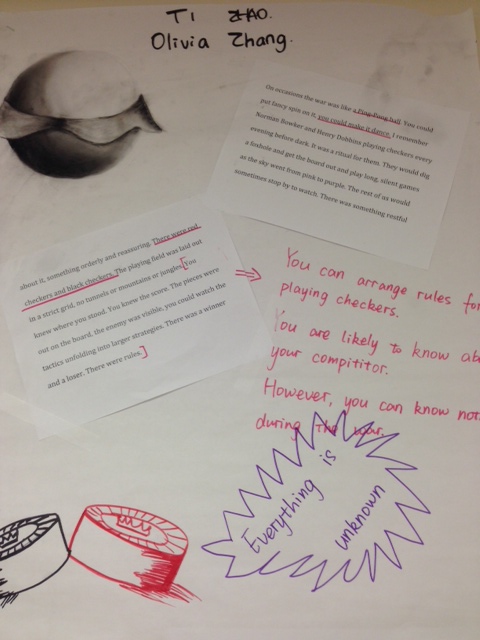 TI ZHAO.
Olivia Zhang.
On occasions the war was like a Ping-Pong ball. You could
put fancy spin on it, you could make it dance. I remember
Norman Bowker and Henry Dobbins playing checkers every
evening before dark. It was a ritual for them. They would dig
a foxhole and get the board out and play long, silent games
as the sky went from pink to purple. The rest of us would
sometimes stop by to watch. There was something restful
about it, something orderly and reassuring. There were red
checkers and black checkers. The playing field was laid out
in a strict grid, no tunnels or mountains or jungles. [You
knew where you stood. You knew the score. The pieces were
out on the board, the enemy was visible, you could watch the
tactics unfolding into larger strategies. There was a winner
and a loser. There were rules.]
⇒ You can arrange rules for
playing checkers.
You are likely to know ab
your compititor.
However, you can know not
during the war.
Everything is
unknown